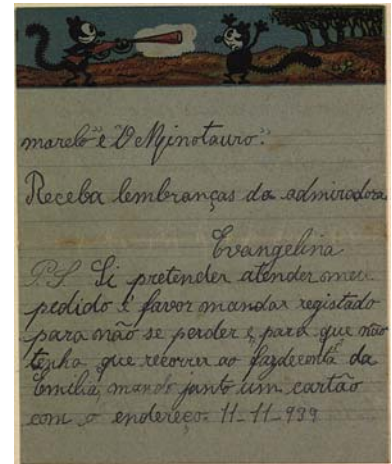 marelo" e "O Minotauro".
Receba lembranças da admiradora
Evangelina
P.S. Si pretender atender meu
pedido é favor mandar registado
para não se perder e, para que não
tenha que recorrer ao fazdeconta da
Emilia, mando junto um cartão
com o endereço. 11-11-939